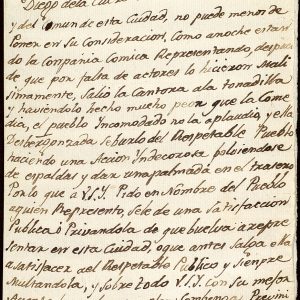 Diego de la
y del comun de esta Ciudad, no puede menor de
Poner en su Consideracion, como anoche estan
do la Compañia Comica Representando, despues
de que por falta de actores lo hicieron mali
simamente, Salio la Cantora ala tonadilla
y haviendolo hecho mucho peor que la Come
dia, el pueblo Incomodado no la aplaudio, y ella
Desbergonzada se burlo del Respetable Pueblo
haciendo una Accion Indecorosa poliendose
de espaldas y dar una palmada en el trasero
Por lo que a V.S.Y. Pido en Nombre del Pueblo
aquien Represento, sele de una Satisfaccion
Publica ô Privandola de que buelva a repre
sentar en esta Ciudad, o que antes Salga ella
a satisfacer al Respetable Publico y Sienpre
Multandola, y sobre todo V.S.Y. con su mejor